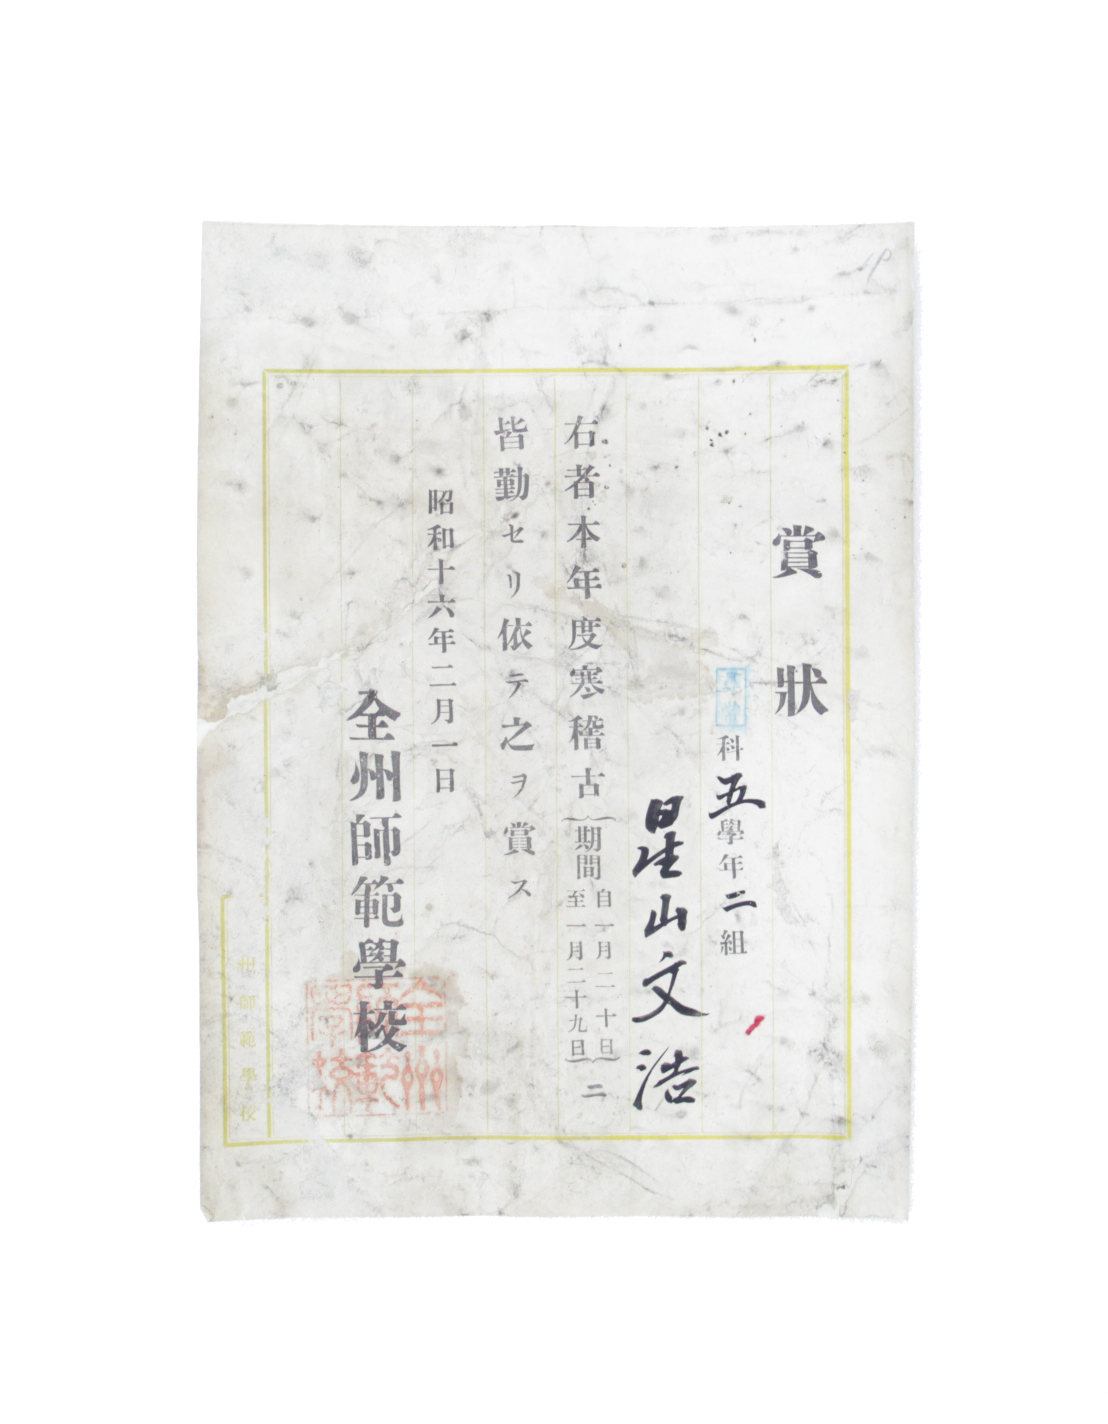 賞狀
科五學年二組
星山文浩
右者本年度寒稽古(期間 自一月二十日 至一月二十九日)ニ
皆勤セリ依テ之ヲ賞ス
昭和十六年二月一日
全州師範學校
全州師範學校
州師範學校